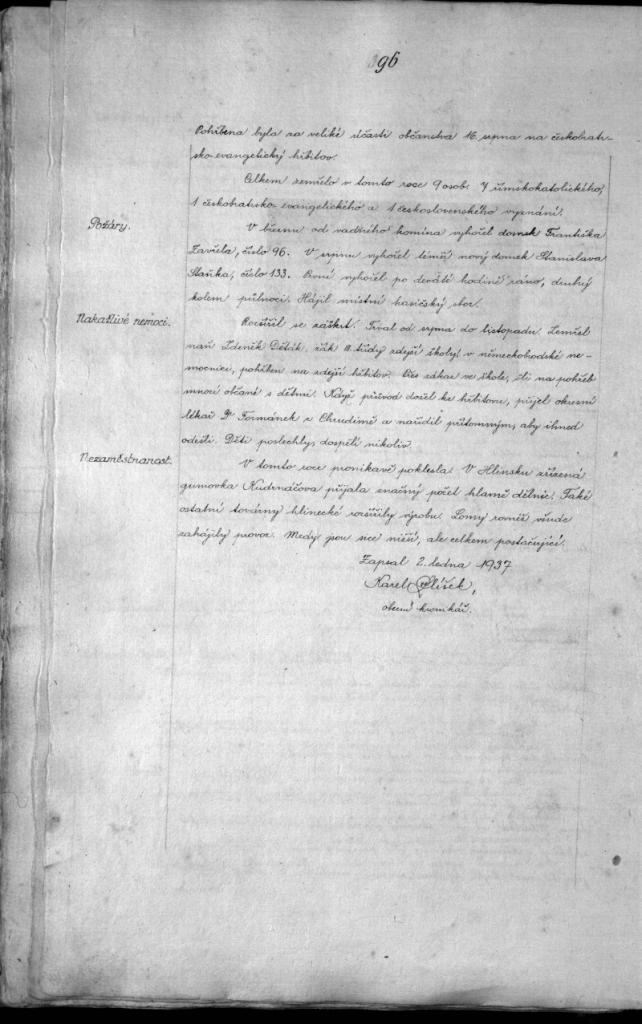 96
Pohřbena byla za veliké účasti občanstva 16. srpna na českobratr-
sko-evangelický hřbitov.
Celkem zemřelo v tomto roce 9 osob. 7 římskokatolického,
1 českobratrsko-evangelického a 1 československého vyznání.
Požáry.
V březnu od vadného komína vyhořel domek Františka
Zavřela, číslo 96. V srpnu vyhořel téměř nový domek Stanislava
Staňka, číslo 133. První vyhořel po deváté hodině ráno, druhý
kolem půlnoci. Hájil místní hasičský sbor.
Nakažlivé nemoci.
Rozšířil se záškrt. Trval od srpna do listopadu. Zemřel
naň Zdeněk Děták, žák II. třídy zdejší školy, v německobrodské ne-
mocnici, pohřben na zdejší hřbitov. Přes zákaz ve škole, šli na pohřeb
mnozí občané s dětmi. Když průvod došel ke hřbitovu, přijel okresní
lékař Dr Formánek z Chrudimě a nařídil přítomným, aby ihned
odešli. Děti poslechly, dospělí nikoliv.
Nezaměstnanost.
V tomto roce pronikavě poklesla. V Hlinsku zřízená
gumovka Kudrnáčova přijala značný počet hlavně dělnic. Také
ostatní továrny hlinecké rozšířily výrobu. Lomy rovněž všude
zahájily provoz. Mzdy jsou sice nižší, ale celkem postačující.
Zapsal 2. ledna 1937
Karel
obecní kronikář.